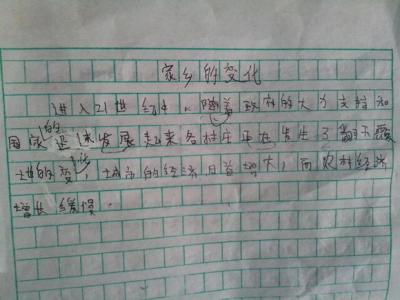 家乡的变化
进入21世纪中,随着政府的大力支持和
国家的迅速发展起来各村庄正在发生了翻天覆
地的变化,城市的经济日益增大,而农村经济
增长缓慢.